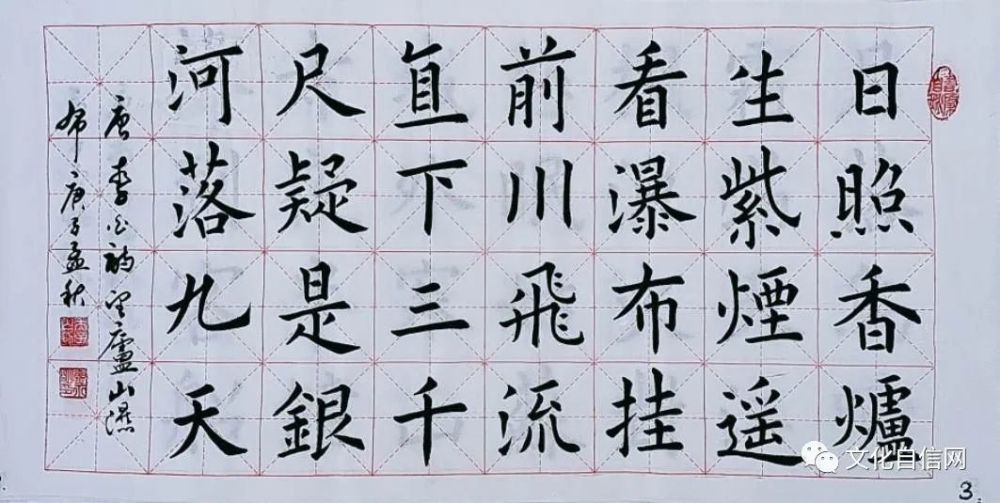 日照香爐
生紫煙遥
看瀑布挂
前川飛流
直下三千
尺疑是銀
河落九天
唐李白詩望廬山瀑
布庚子孟秋
文化自信网
3.